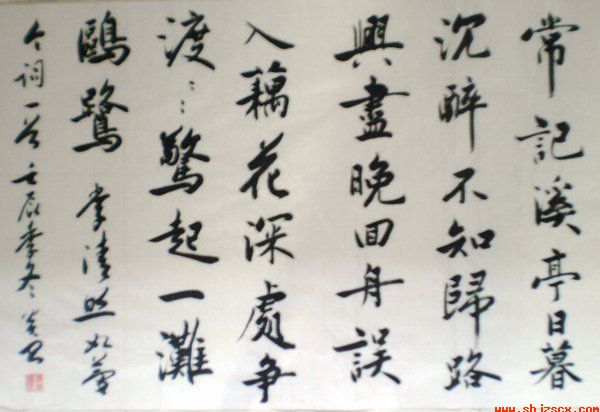 常記溪亭日暮
沉醉不知歸路
興盡晚回舟誤
入藕花深處爭
渡：：驚起一灘
鷗鷺 李清照如夢
令詞一首 壬辰季冬 书